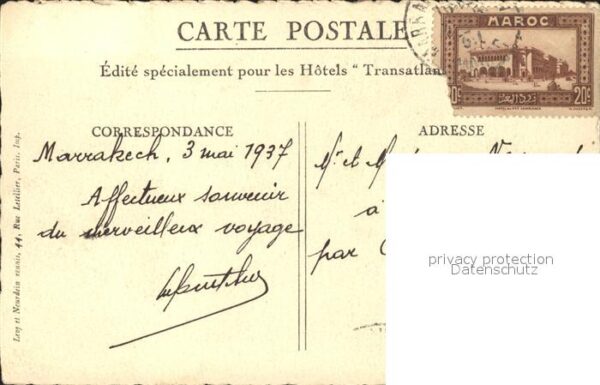 CARTE POSTALE
MAROC
20c
Édité spécialement pour les Hôtels " Transatlan
CORRESPONDANCE
ADRESSE
Marrakech, 3 mai 1937
Affectueux souvenir
du merveilleux voyage
Mr et
à
par
privacy protection
Datenschutz
Levy et Neurdein reunis, 44, Rue Letellier, Paris, Imp.